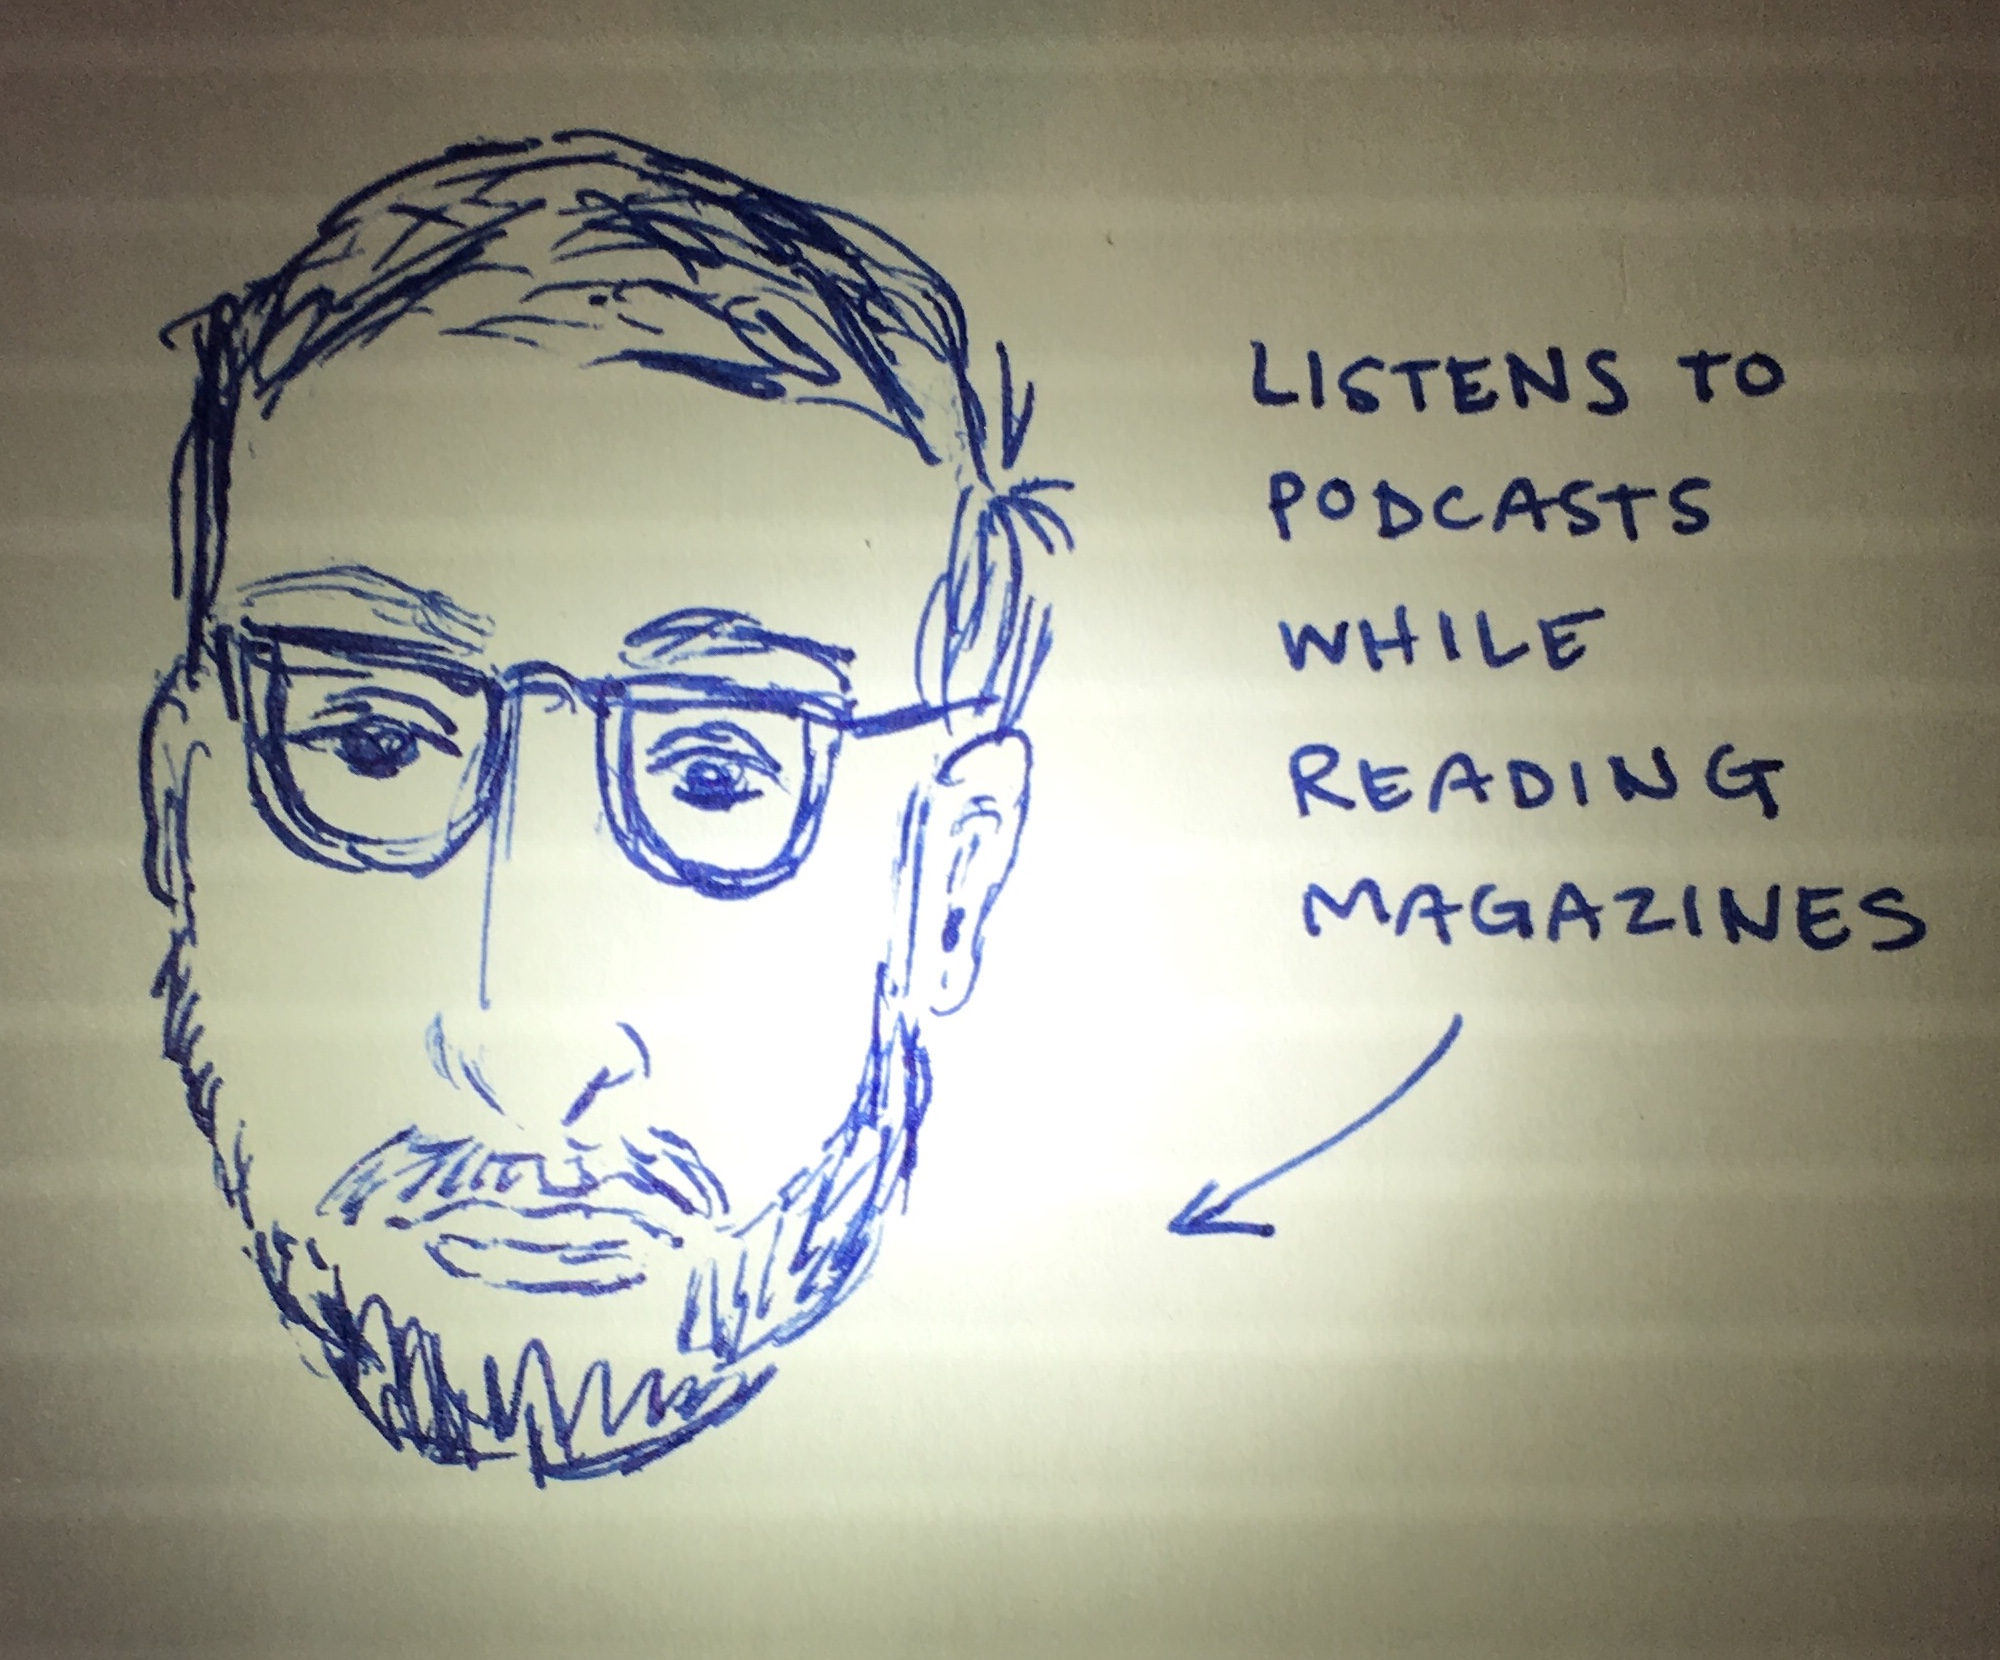 LISTENS TO
PODCASTS
WHILE
READING
MAGAZINES